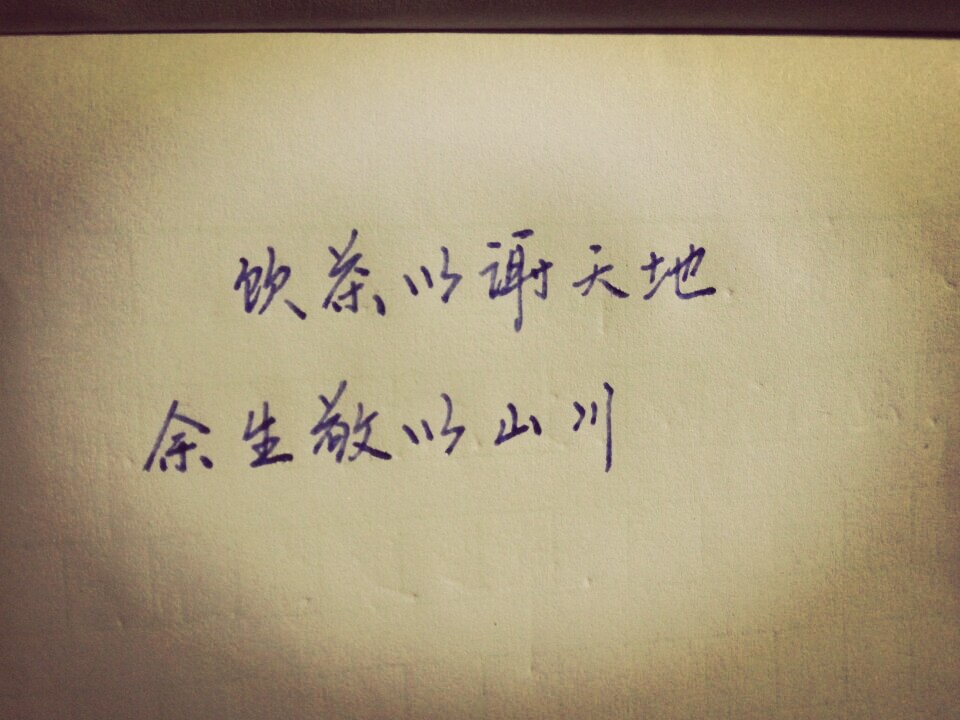 饮茶以谢天地
余生敬以山川